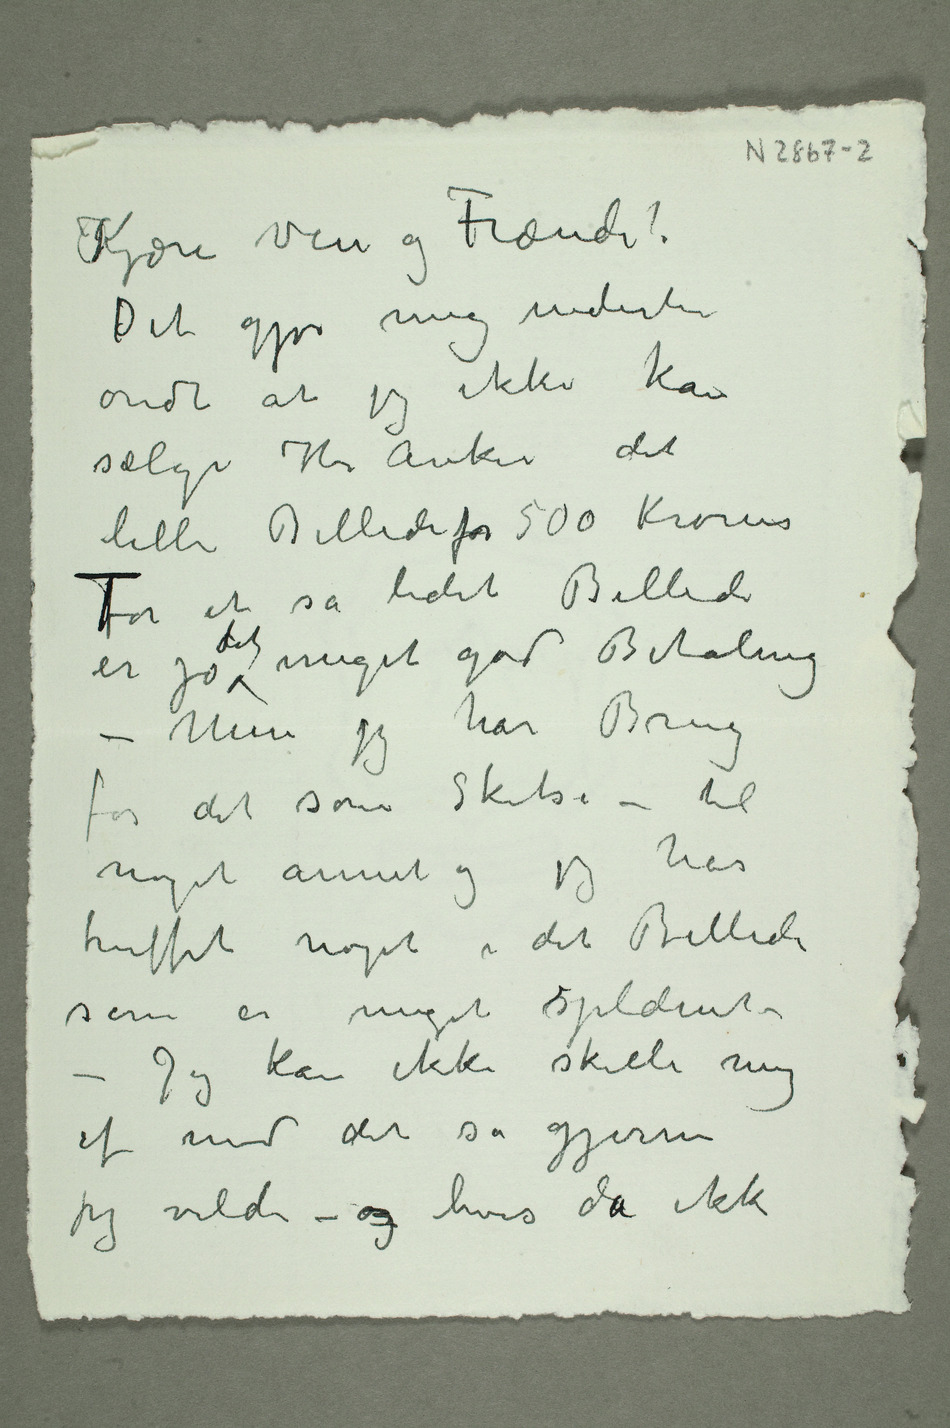 N 2867-2
Kjære Ven og Frænde!
Det gjør mig
ondt at jeg ikke kan
sælge Hr Anker det
lille Billede for 500 Kroner
For et så lidet Billede
er jo det meget god Betaling
– Men jeg har Brug
for det som Skitse – til
noget annet og jeg har
truffet noget i det Billede
som er meget
– Jeg kan ikke skille mig
af med det så gjerne
jeg vilde – og hvis da ikk